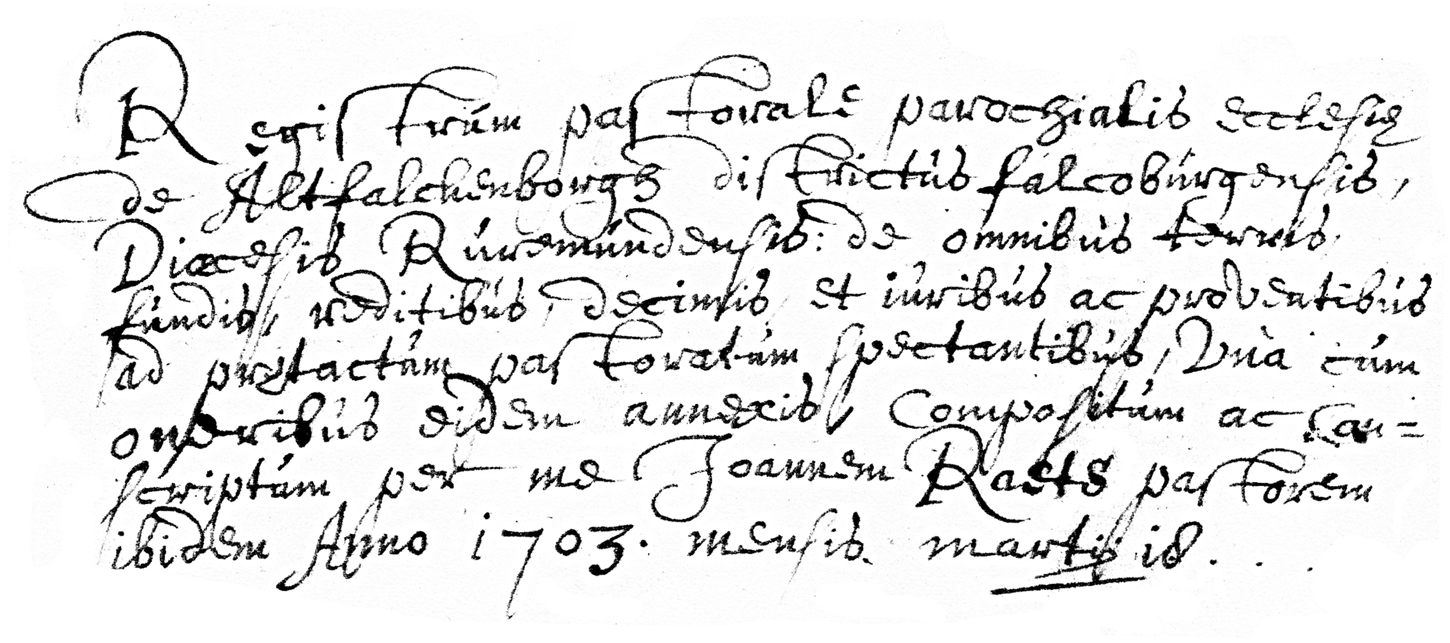 Registrum pastorale parochialis ecclesię
de Altfalchenborgh districtus falcoburgensis,
Diœcesis Ruremundensis: de omnibus terris,
fundis, reditibus, decimis, et iuribus ac proventibus
ad prętactum pastoratum spectantibus, Unà cum
oneribus eidem annexis, Compositum ac con=
scriptum per me Joannem Raets pastorem
ibidem Anno 1703. mensis martis 18...